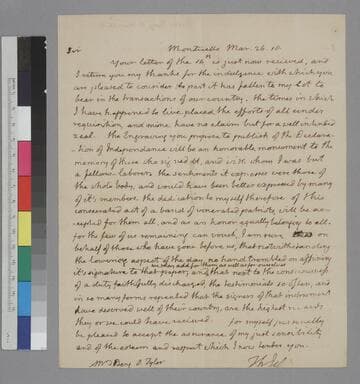 Sir Monticello Mar. 26. 10.
Your letter of the 16th is just now recieved, and
I return you my thanks for the indulgence with which you
are pleased to consider the part it has fallen to my lot to
bear in the transactions of our country. the times in which
I have happened to live, placed the efforts of all under
requisition, and mine have no claim but for a well intended
zeal. the Engraving you propose to publish of the Declara-
-tion of Independance will be an honorable monument to the
memory of those who signed it, and with whom I was but
a fellow-laborer. the sentiments it expresses were those of
the whole body, and would have been better expressed by many
of it's members. the dedication to myself therefore of this
consecrated act of a band of venerated patriots, will be ac-
cepted for them all, and as an honor equally belonging to all.
for the few of us remaining can vouch, I am sure, on
behalf of those who have gone before us, that notwithstanding
the lowering aspect of the day, no hand trembled on affixing
it's signature to that paper, and that next to the consciousness
of a duty faithfully discharged, the testimonials so often, and
in so many forms repeated that the signers of that instrument
have deserved well of their country, are the highest reward
they or we could have recieved. for myself personally
be pleased to accept the assurance of my just sensibility
and of the esteem and respect which I now tender you.
Th: Jeff
O. Tyler